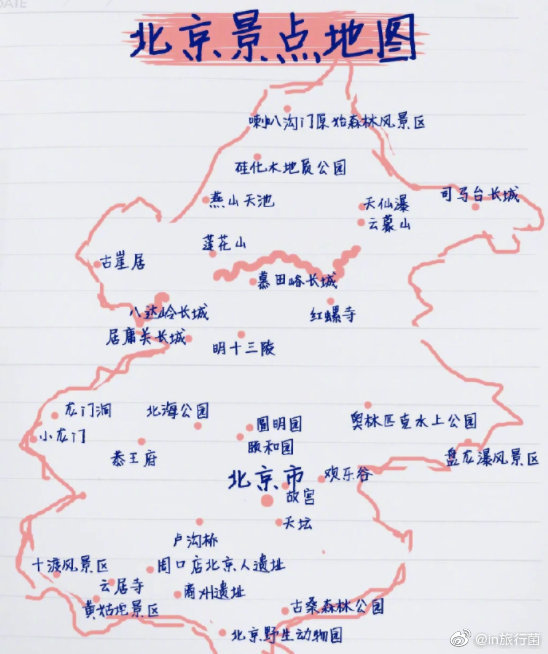 DATE
北京景点地图
喇叭沟门原始森林风景区
硅化木地质公园
燕山天池
天仙瀑
司马台长城
云蒙山
莲花山
古崖居
慕田峪长城
八达岭长城
红螺寺
居庸关长城
明十三陵
龙门涧
北海公园
圆明园
奥林匹克水上公园
小龙门
恭王府
颐和园
盘龙瀑风景区
北京市
欢乐谷
故宫
天坛
卢沟桥
十渡风景区
周口店北京人遗址
云居寺
商州遗址
黄姑坨景区
古桑森林公园
北京野生动物园
@in旅行菌